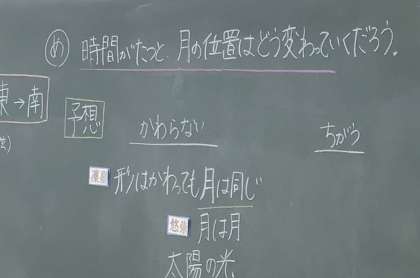 め 時間がたつと、月の位置はどう変わっていくだろう。
東→南
予想
かわらない
ちがう
形はかわっても月は同じ
月は月
太陽の光